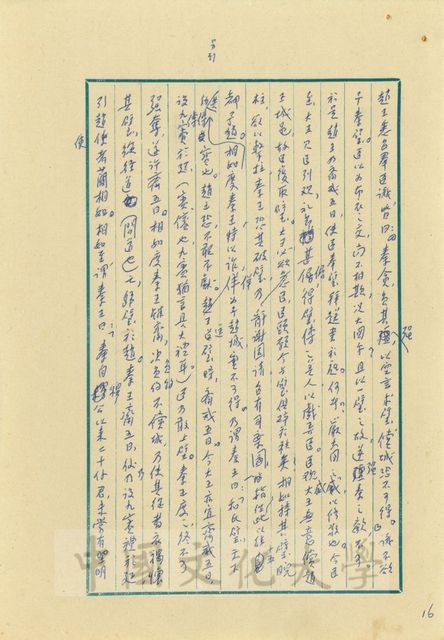 趙王悉召羣臣議,皆曰:秦貪,負其強,以空言求璧,償城恐不可得。議不欲
予秦璧。臣以為布衣之交,尚不相欺,況大國乎。且以一璧之故,逆強秦之歡,不可。
於是趙王乃齋戒五日,使臣奉璧,拜送書於庭。何者?嚴大國之威以修敬也。今臣
至,大王見臣列觀,禮節甚倨,得璧傳之美人,以戲弄臣。臣觀大王無意償趙
王城邑,故臣復取璧。大王必欲急臣,臣頭今與璧俱碎於柱矣。相如持其璧睨
柱,欲以擊柱。秦王恐其破璧,乃辭謝固請,召有司案圖,指從此以往十五
都予趙。相如度秦王特以詐佯為予趙城,實不可得,乃謂秦王曰:和氏璧,天下
所共傳寶也。趙王恐,不敢不獻。趙王送璧時,齋戒五日。今大王亦宜齋戒五日,
設九賓於廷(賓儐也九賓猶言具大禮耳)臣乃敢上璧。秦王度之,終不可
強奪,遂許齋五日。相如度秦王雖齋,決負約不償城,乃使其從者衣褐懷
其璧,從徑道(間道也)亡歸璧於趙。秦王齋五日後,乃設九賓禮於廷
引趙使者藺相如。相如至,謂秦王曰:秦自繆公以來二十餘君,未嘗有堅明
16
中國文化大學